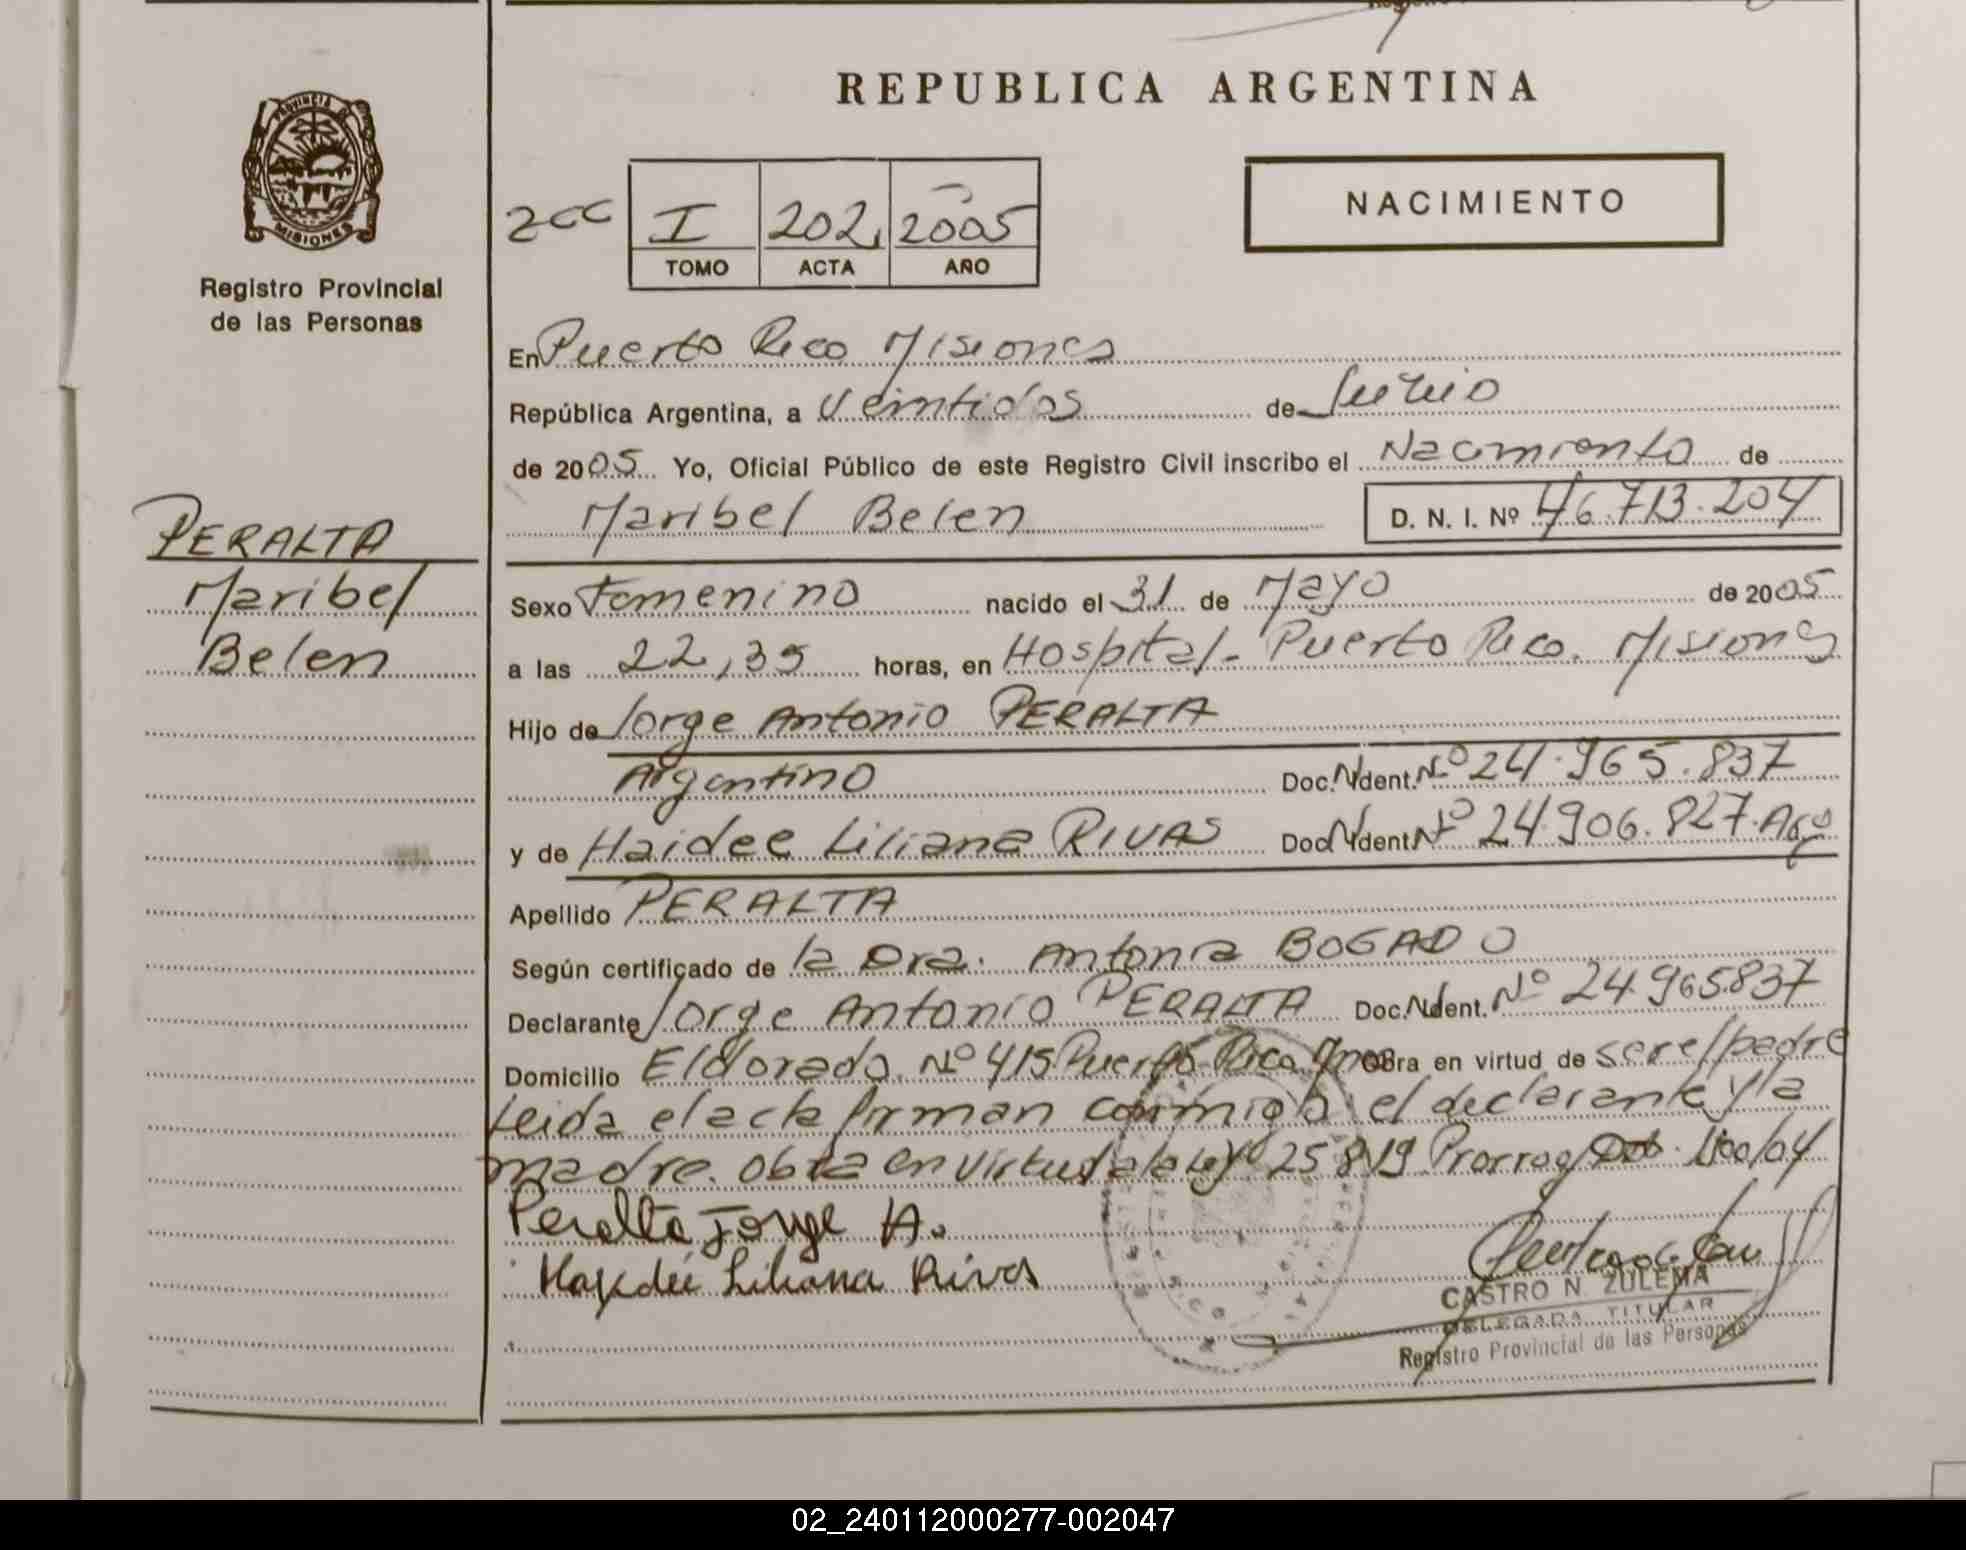 REPUBLICA ARGENTINA
PROVINCIA
MISIONES
Registro Provincial
de las Personas
2cc I 202 2005
TOMO ACTA AÑO
NACIMIENTO
En Puerto Rico Misiones
República Argentina, a Veintidos de Junio
de 2005 Yo, Oficial Público de este Registro Civil inscribo el Nacimiento de
Maribel Belen D. N. I. Nº 46.713.204
PERALTA
Maribel
Belen
Sexo Femenino nacido el 31 de Mayo de 2005
a las 22,35 horas, en Hospital - Puerto Rico. Misiones
Hijo de Jorge Antonio PERALTA
Argentino Doc. N Ident. Nº 24.965.837
y de Haidee Liliana RIVAS Doc N Ident Nº 24.906.827. Arg
Apellido PERALTA
Según certificado de la Dra. Antonia BOGADO
Declarante Jorge Antonio PERALTA Doc. N Ident. Nº 24.965837
Domicilio Eldorado Nº 415 Puerto Rico Mnes Obra en virtud de ser el padre
Leida el acta firman conmigo el declarante y la
madre. Obra en virtud a la ley Nº 25819 Prorrog Dto. 1100/04
Peralta Jorge A.
Haydeé Liliana Rivas
CASTRO N. ZULEMA
DELEGADA TITULAR
Registro Provincial de las Personas
02_240112000277-002047